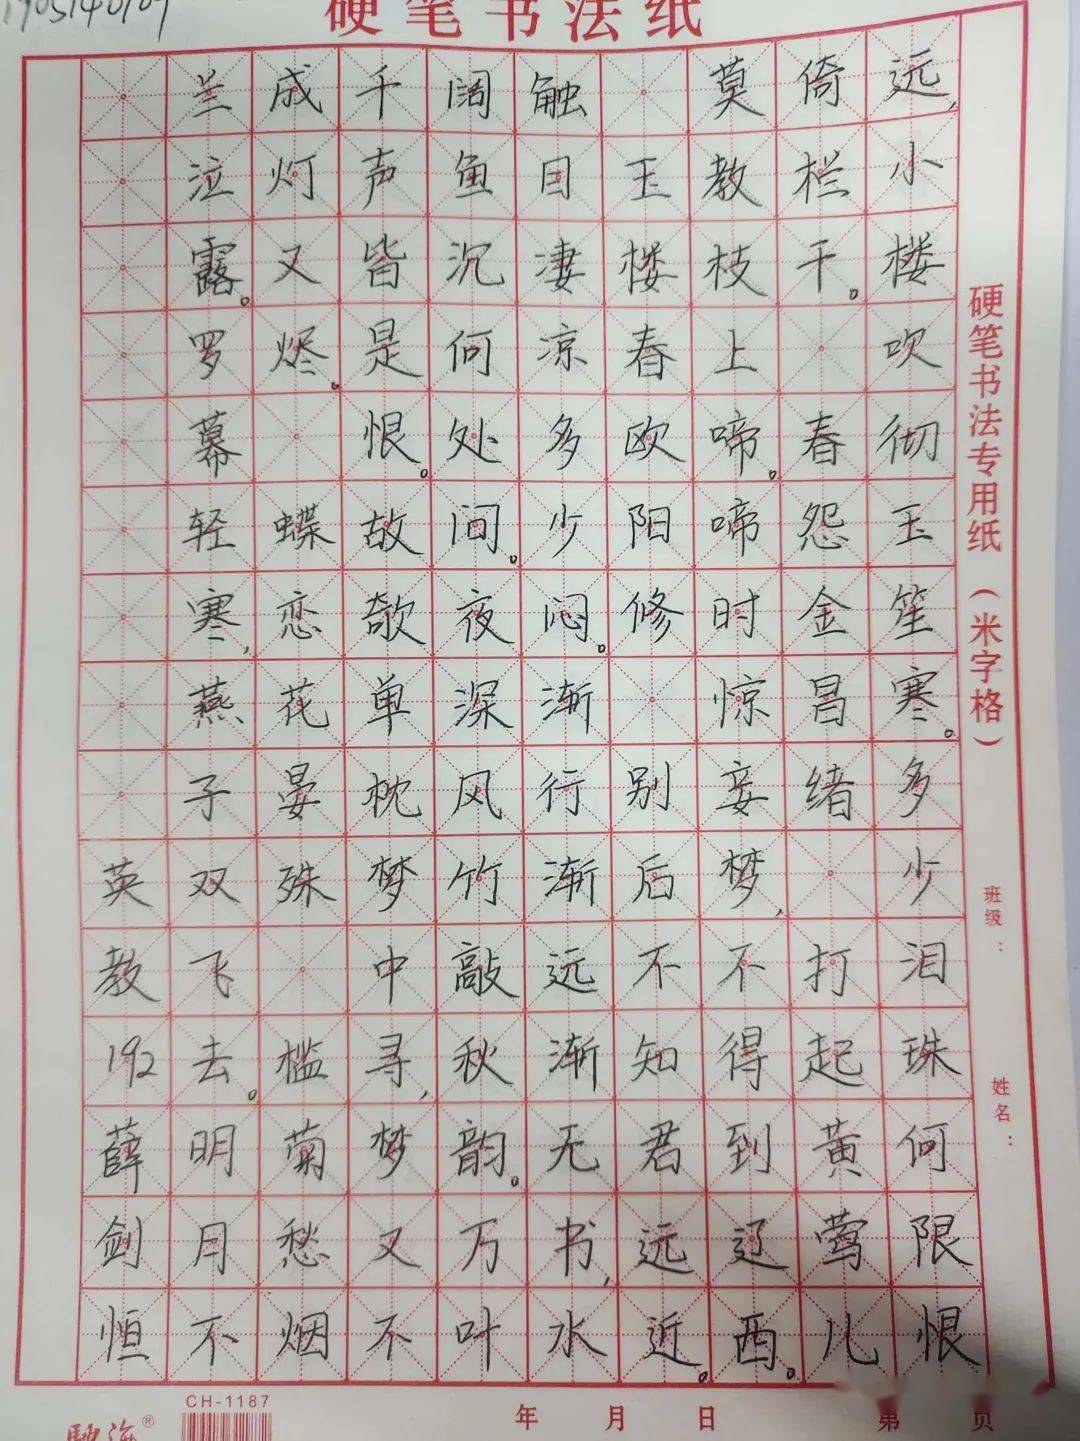 硬笔书法纸
远,小楼吹彻玉笙寒。多少泪珠何限恨
倚栏干。 春怨金昌绪 打起黄莺儿
莫教枝上啼。啼时惊妾梦,不得到辽西。
玉楼春欧阳修 别后不知君远近。
触目凄凉多少闷。渐行渐远渐无书,水
阔鱼沉何处间。夜深风竹敲秋韵。万叶
千声皆是恨。故欹单枕梦中寻,梦又不
成灯又烬。 蝶恋花晏殊 槛菊愁烟
兰泣露。罗幕轻寒,燕子双飞去。明月不
英教192薛剑恒
硬笔书法专用纸(米字格)
班级:
姓名:
CH-1187
年 月 日
第 页